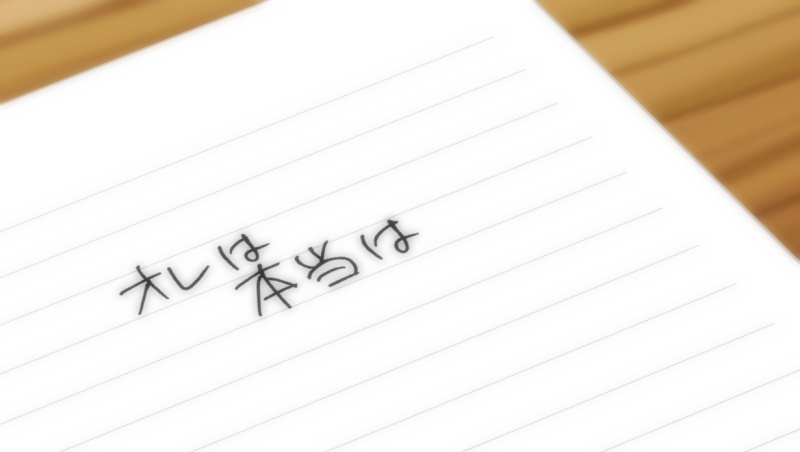 オレは
本当は